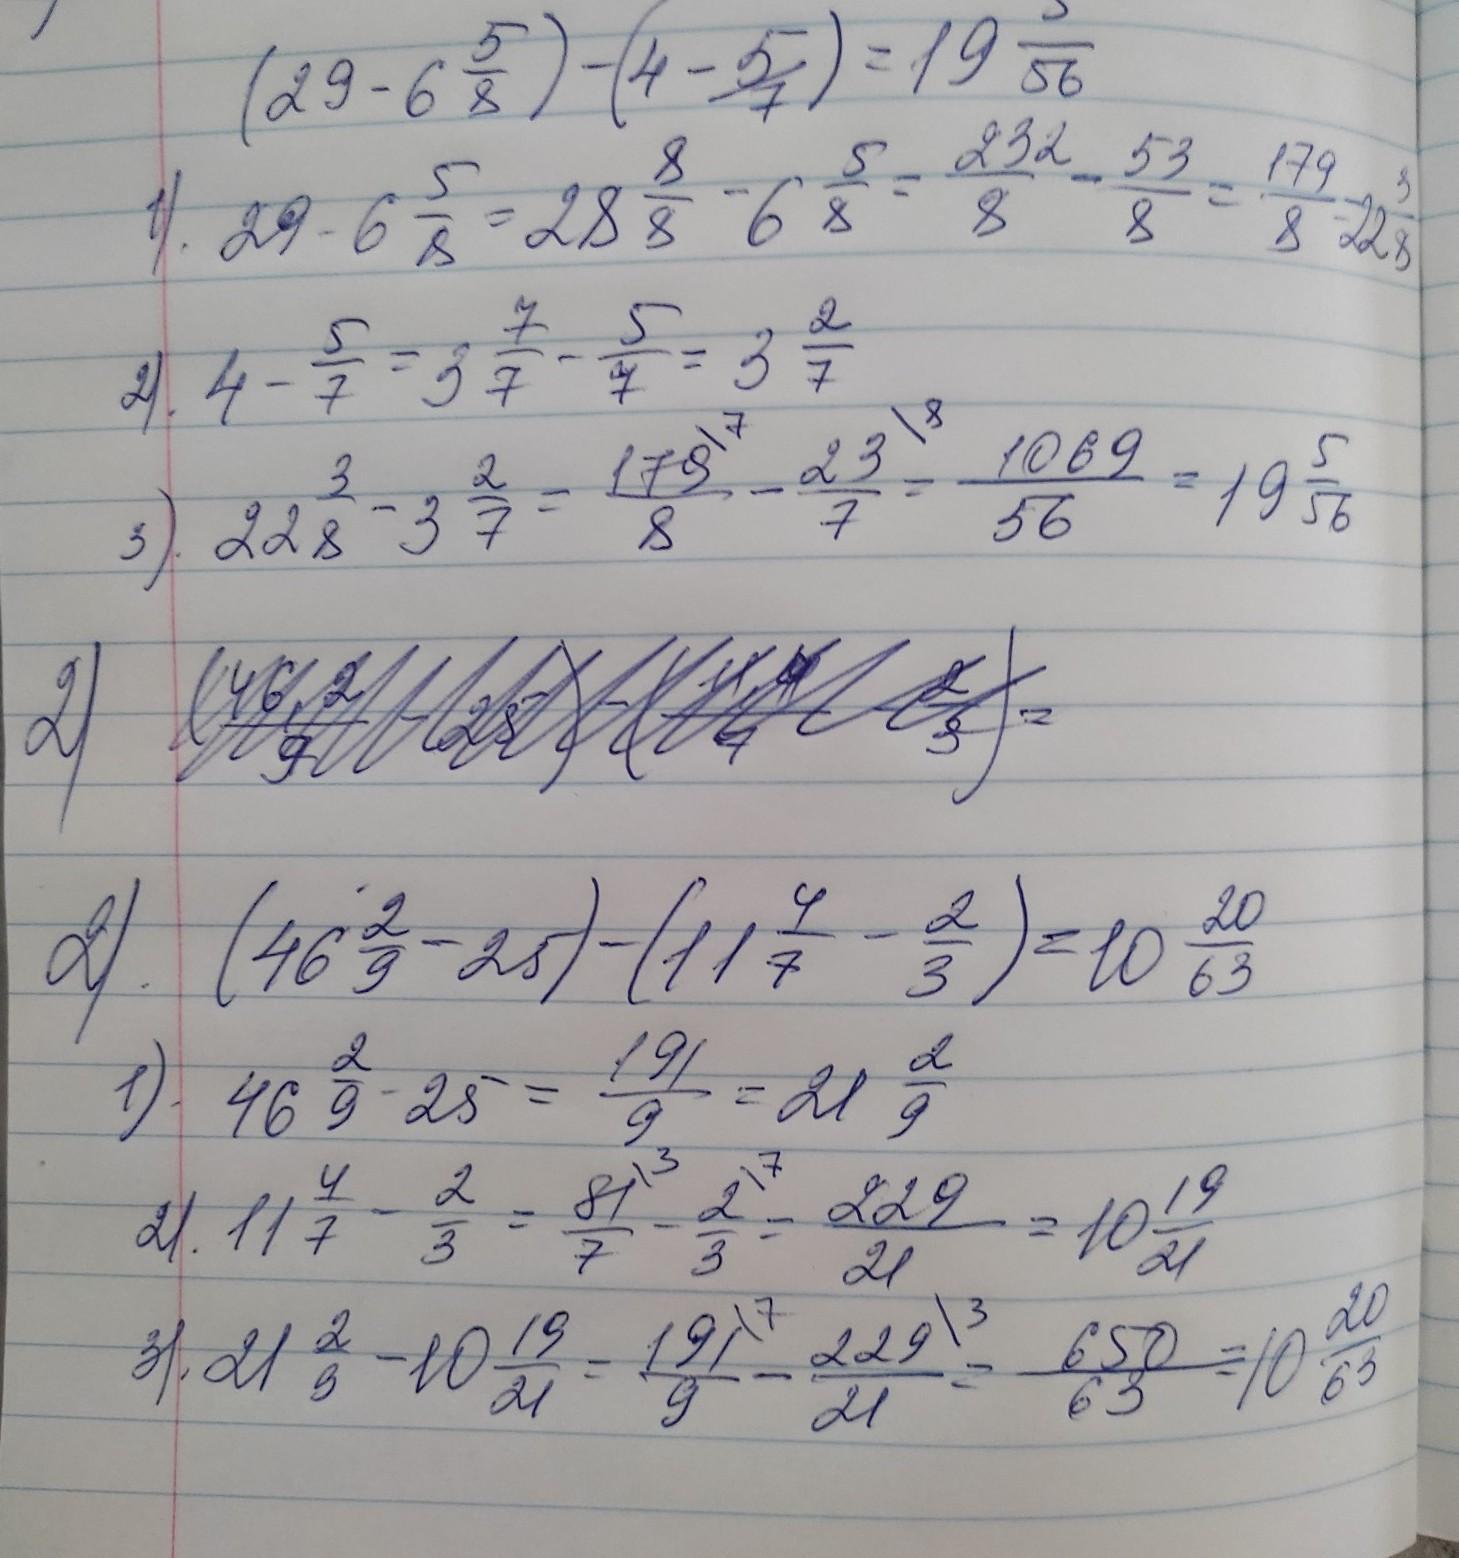 (29 - 6 5/8) - (4 - 5/7) = 19 5/56
1). 29 - 6 5/8 = 28 8/8 - 6 5/8 = 232/8 - 53/8 = 179/8 = 22 3/8
2). 4 - 5/7 = 3 7/7 - 5/7 = 3 2/7
3). 22 3/8 - 3 2/7 = 179/8 \7 - 23/7 \8 = 1069/56 = 19 5/56
2) =
2). (46 2/9 - 25) - (11 4/7 - 2/3) = 10 20/63
1). 46 2/9 - 25 = 191/9 = 21 2/9
2). 11 4/7 - 2/3 = 81/7 \3 - 2/3 \7 = 229/21 = 10 19/21
3). 21 2/9 - 10 19/21 = 191/9 \7 - 229/21 \3 = 650/63 = 10 20/63